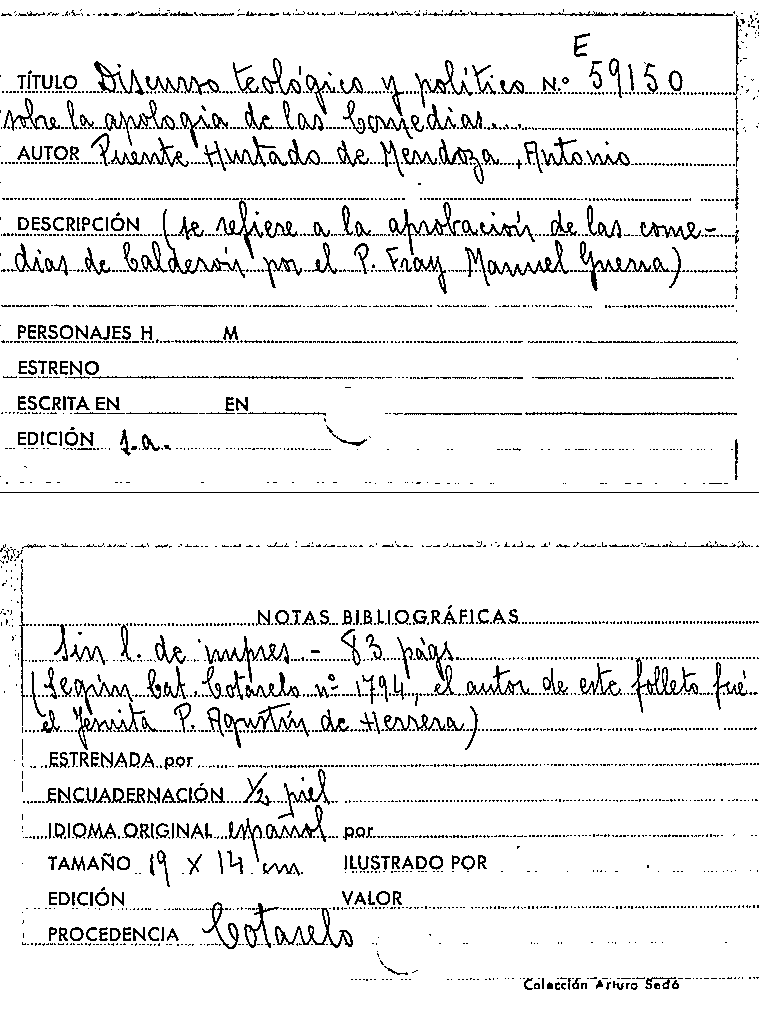 E
TÍTULO Discurso teológico y político N.º 59150
sobre la apologia de las Comedias...
AUTOR Puente Hurtado de Mendoza, Antonio
DESCRIPCIÓN (se refiere a la aprobación de las come-
dias de Calderón por el P. Fray Manuel Guerra)
PERSONAJES H M
ESTRENO
ESCRITA EN EN
EDICIÓN 1.a.
NOTAS BIBLIOGRÁFICAS
Sin l. de impres - 83 págs
(Según Cat. Cotarelo nº 1794, el autor de este folleto fué
el Jesuita P. Agustín de Herrera)
ESTRENADA por
ENCUADERNACIÓN 1/2 piel
IDIOMA ORIGINAL español por
TAMAÑO 19 X 14 cm. ILUSTRADO POR
EDICIÓN VALOR
PROCEDENCIA Cotarelo
Colección Arturo Sedó